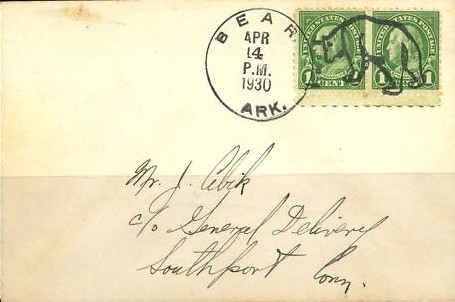 BEAR
APR
14
P.M.
1930
ARK.
UNITED STATES POSTAGE
1 CENT 1
UNITED STATES POSTAGE
1 CENT 1
Mr. J. Cibik
c/o General Delivery
Southport Conn.